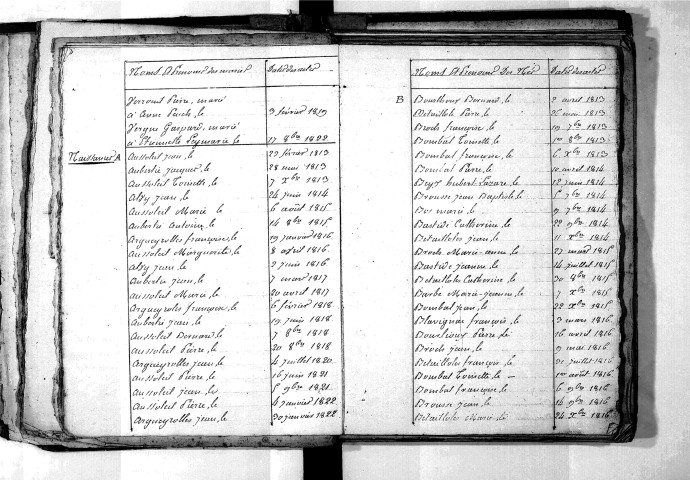 Noms & Prénoms des mariés Date des actes
Verrouil Pierre, marié
à Anne Puech, le 3 février 1819
Vergne Gaspard, marié
à Peymarie le 17 8bre 1822
Naissances A Aussoleil Jean, le 29 février 1813
Aubertie Jacques, le 28 mai 1813
Aussoleil Toinette, le 7 xbre 1813
Alby Jean, le 24 juin 1814
Aussoleil Marie le 6 août 1815
Auberti Antoine, le 14 8bre 1815
Argueyrolles françoise, le 19 janvier 1816
Aussoleil Marguerite, le 8 avril 1816
Alby Jean, le 2 juin 1816
Aubertie Jean, le 7 mars 1817
Aussoleil Marie, le 20 avril 1817
Argueyrolles françoise, le 6 février 1818
Aubertie Jean, le 19 juin 1818
Aussoleil Bernard, le 7 8bre 1818
Aussoleil Pierre, le 20 8bre 1818
Argueyrolles Jean, le 4 juillet 1820
Aussoleil Pierre, le 16 juin 1821
Aussoleil Jean, le 5 9bre 1821
Aussoleil Pierre, le 4 janvier 1822
Argueyrolles Jean, le 30 janvier 1822
Noms & Prénoms Des Nés Date des actes
B Bourthoux Bernard, le 2 avril 1813
Bétaillole Pierre, le 26 mai 1813
Brods françoise, le 19 7bre 1813
Bombal Toinette, le 1er 8bre 1813
Bombal françoise, le 6 xbre 1813
Bombal Pierre, le 10 avril 1814
Beyt hubert-Lazare, le 12 juin 1814
Brousse Jean Baptiste, le 5 7bre 1814
Bos marie, le 9 7bre 1814
Bastide Catherine, le 22 9bre 1814
Bétailloles Jean, le 11 xbre 1814
Brods Marie-anne, le 27 mars 1815
Bastide Jeanne, le 14 juillet 1815
Betailloles Catherine, le 30 8bre 1815
Barbe Marie-Jeanne, le 7 xbre 1815
Bombal Jean, le 22 xbre 1815
Blavignac françois, le 3 mars 1816
Bourthoux Pierre, le 16 avril 1816
Brods Jean, le 19 mai 1816
Bétailloles françois, le 31 juillet 1816
Bombal Toinette, le 1er août 1816
Bombal françoise, le 6 9bre 1816
Brousse Jean, le 16 9bre 1816
Bétailloles Marie, le 24 xbre 1816